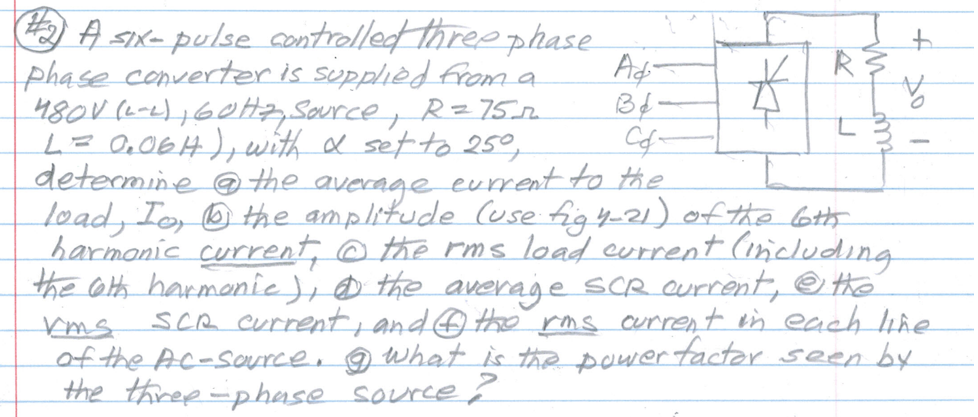 #2 A six-pulse controlled three phase
phase converter is supplied from a
480V (L-L), 60Hz, Source, R = 75Ω
L = 0.06H), with α set to 25°,
determine ⓐ the average current to the
load, Io, ⓑ the amplitude (use fig 4-21) of the 6th
harmonic current, ⓒ the rms load current (including
the 6th harmonic), ⓓ the average SCR current, ⓔ the
rms SCR current, and ⓕ the rms current in each line
of the AC-source. ⓖ What is the power factor seen by
the three-phase source?
Aϕ
Bϕ
Cϕ
R
L
+
Vo
-